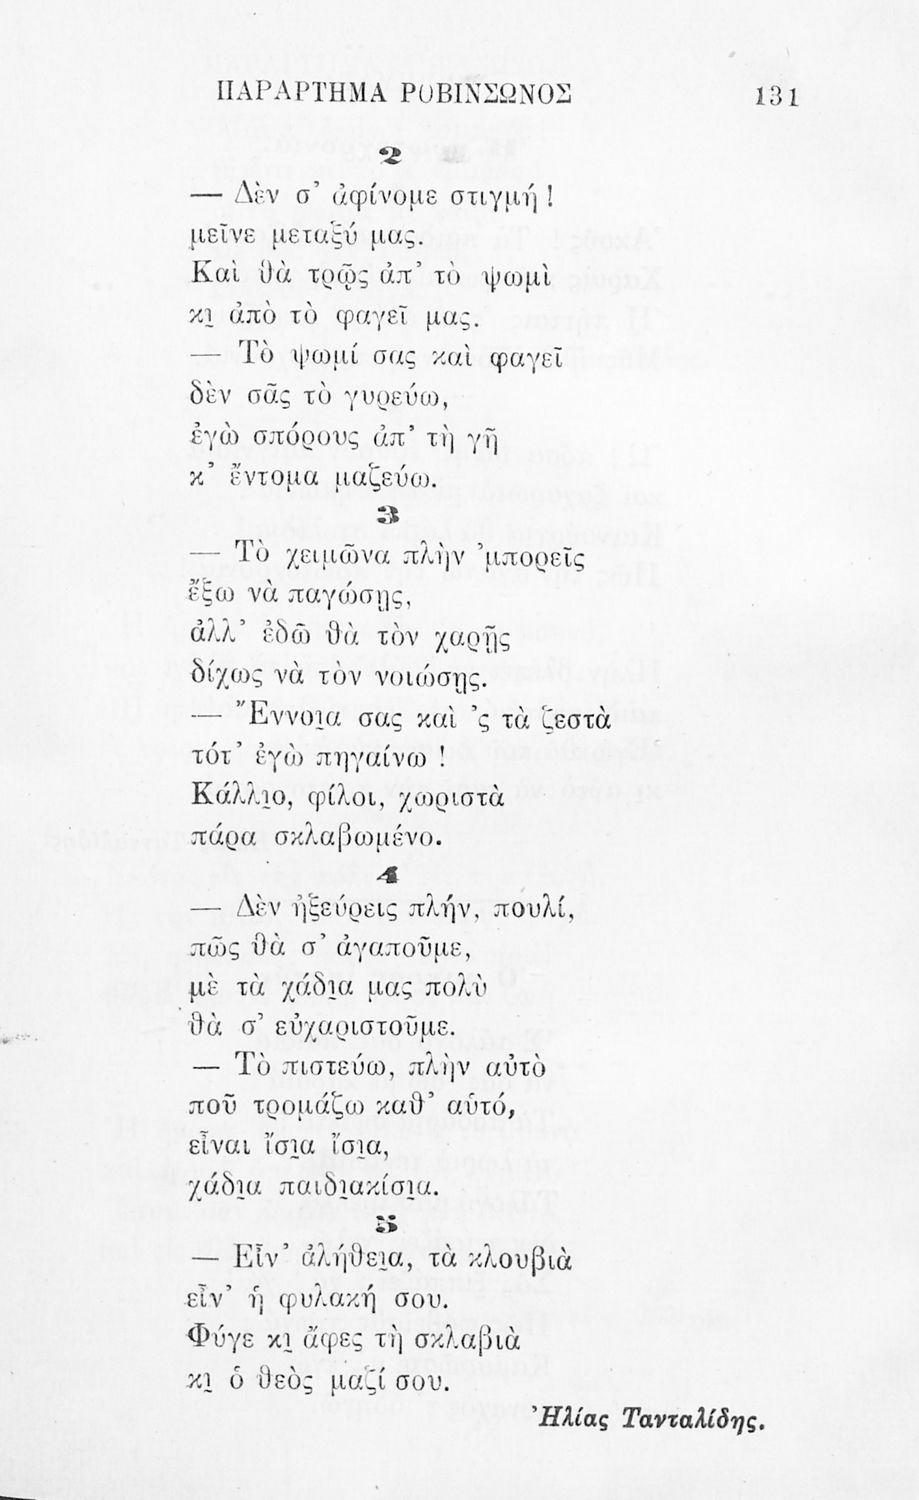 ΠΑΡΑΡΤΗΜΑ ΡΟΒΙΝΣΩΝΟΣ 131
2
— Δὲν σ’ ἀφίνομε στιγμή !
μεῖνε μεταξύ μας.
Καὶ θὰ τρῷς ἀπ’ τὸ ψωμὶ
κι̯ ἀπὸ τὸ φαγεῖ μας.
— Τὸ ψωμί σας καὶ φαγεῖ
δὲν σᾶς τὸ γυρεύω,
ἐγὼ σπόρους ἀπ’ τὴ γῆ
κ’ ἔντομα μαζεύω.
3
— Τὸ χειμῶνα πλὴν ’μπορεῖς
ἔξω νὰ παγώσῃς,
ἀλλ’ ἐδῶ θὰ τὸν χαρῇς
δίχως νὰ τὸν νοιώσῃς.
— Ἔννοι̯α σας καὶ ’ς τὰ ζεστὰ
τότ’ ἐγὼ πηγαίνω !
Κάλλι̯ο, φίλοι, χωριστὰ
πάρα σκλαβωμένο.
4
— Δὲν ἠξεύρεις πλήν, πουλί,
πῶς θὰ σ’ ἀγαποῦμε,
μὲ τὰ χάδι̯α μας πολὺ
θὰ σ’ εὐχαριστοῦμε.
— Τὸ πιστεύω, πλὴν αὐτὸ
ποῦ τρομάζω καθ’ αὑτό,
εἶναι ἴσι̯α ἴσι̯α,
χάδι̯α παιδι̯ακίσι̯α.
5
— Εἶν’ ἀλήθει̯α, τὰ κλουβιὰ
εἶν’ ἡ φυλακή σου.
Φύγε κι̯ ἄφες τὴ σκλαβιὰ
κι̯ ὁ θεὸς μαζί σου.
Ἠλίας Τανταλίδης.